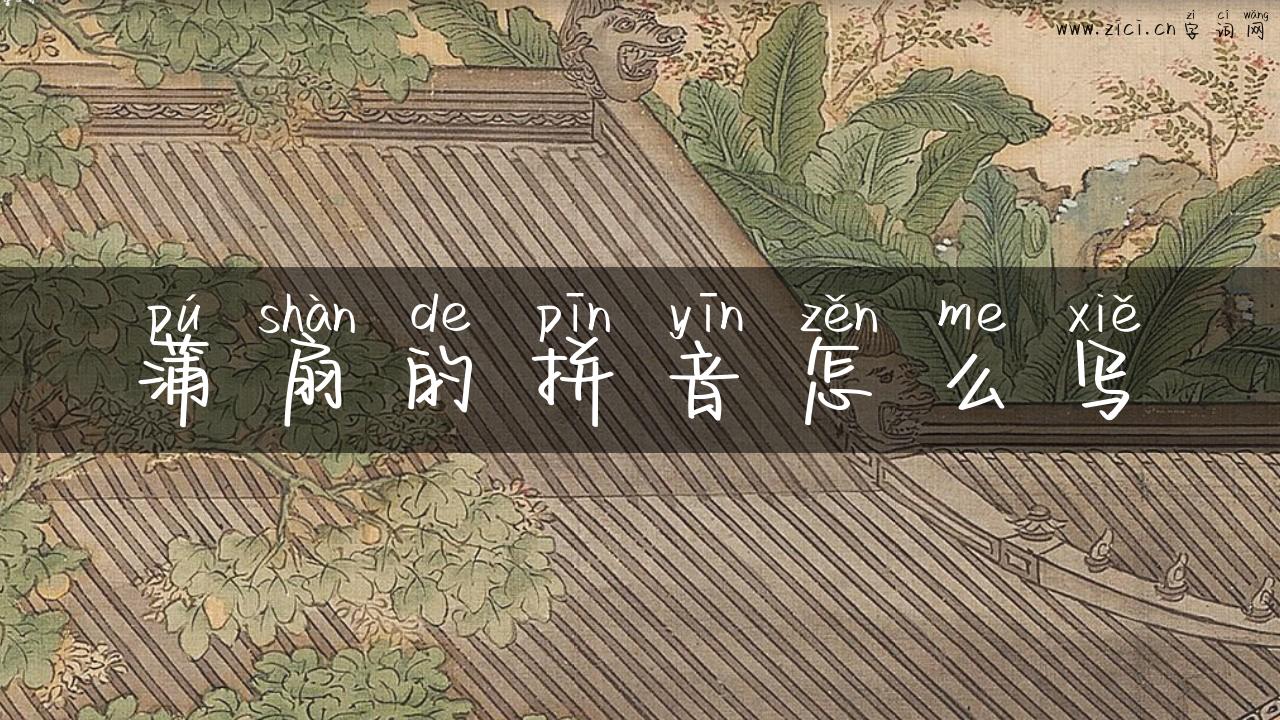 zì cí wǎng
www.zici.cn 字 词 网
pú shàn de pīn yīn zěn me xiě
蒲 扇 的 拼 音 怎 么 写